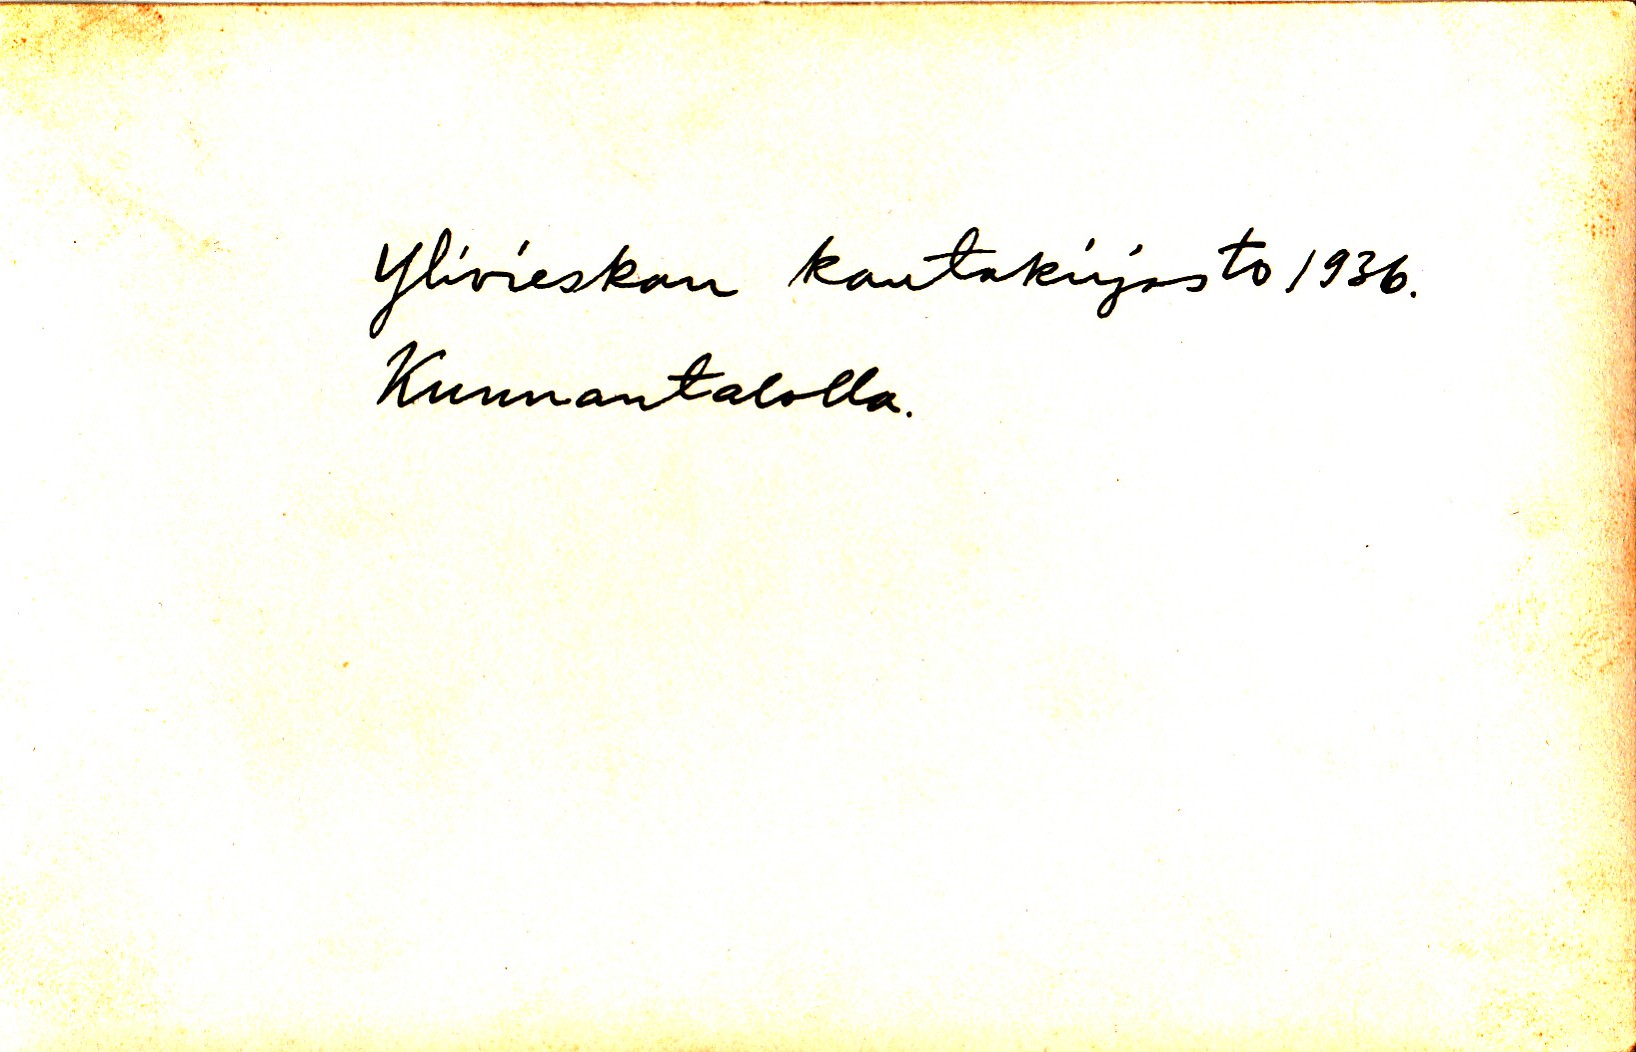 Ylivieskan kantakirjasto 1936.
Kunnantalolla.